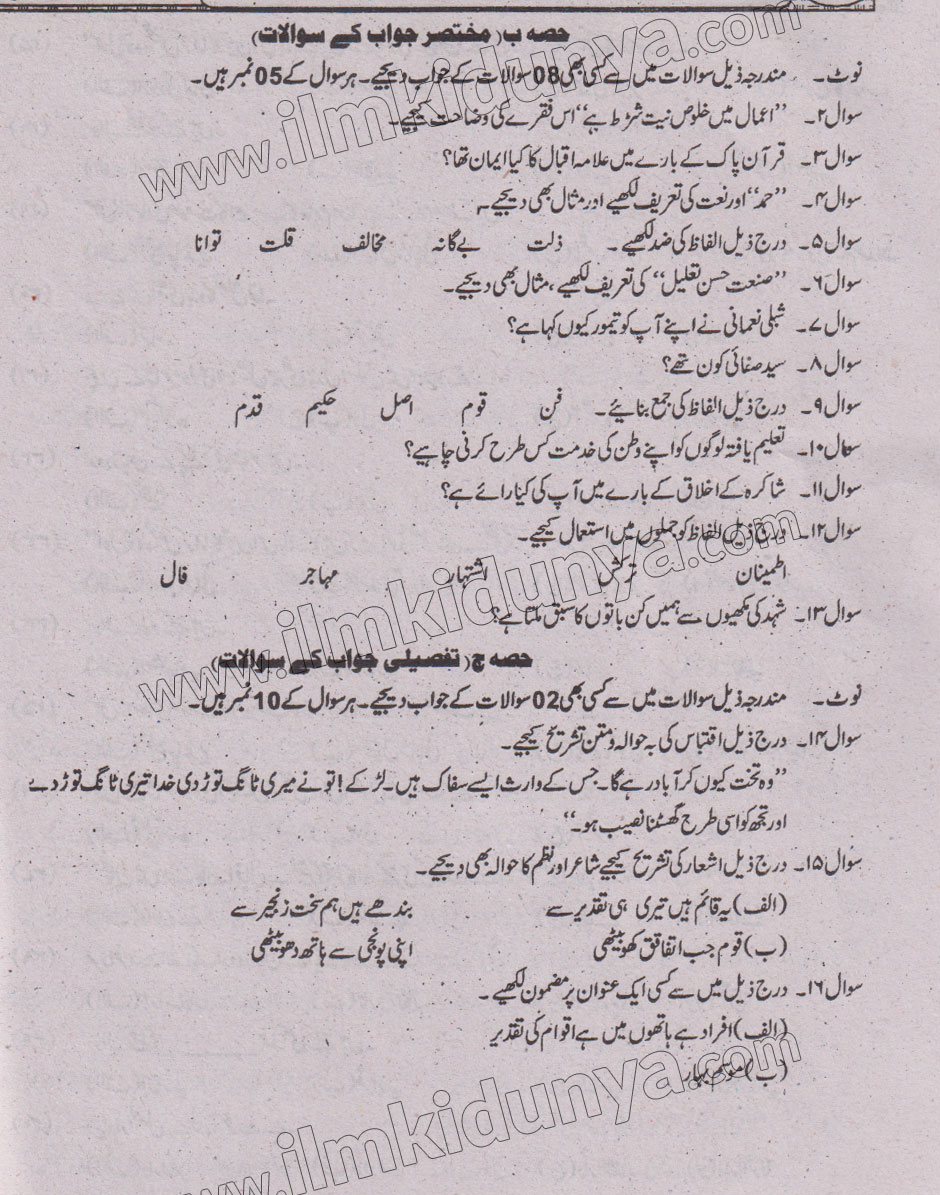 حصہ ب (مختصر جواب کے سوالات)
نوٹ۔ مندرجہ ذیل سوالات میں سے کسی بھی 08 سوالات کے جواب دیجیے۔ ہر سوال کے 05 نمبر ہیں۔
سوال ۲۔ "اعمال میں خلوص نیت شرط ہے" اس فقرے کی وضاحت کیجیے۔
سوال ۳۔ قرآن پاک کے بارے میں علامہ اقبال کا کیا ایمان تھا؟
سوال ۴۔ "حمد" اور نعت کی تعریف لکھیے اور مثال بھی دیجیے۔
سوال ۵۔ درج ذیل الفاظ کی ضد لکھیے۔ ذلت بے گانہ مخالف قلت توانا
سوال ۶۔ "صنعت حسن تعلیل" کی تعریف لکھیے، مثال بھی دیجیے۔
سوال ۷۔ شبلی نعمانی نے اپنے آپ کو تیمور کیوں کہا ہے؟
سوال ۸۔ سید صفائی کون تھے؟
سوال ۹۔ درج ذیل الفاظ کی جمع بنائیے۔ فن قوم اصل حکیم قدم
سوال ۱۰۔ تعلیم یافتہ لوگوں کو اپنے وطن کی خدمت کس طرح کرنی چاہیے؟
سوال ۱۱۔ شاکرہ کے اخلاق کے بارے میں آپ کی کیا رائے ہے؟
سوال ۱۲۔ درج ذیل الفاظ کو جملوں میں استعمال کیجیے۔
اطمینان ترکش اشتہار مہاجر فال
سوال ۱۳۔ شہد کی مکھیوں سے ہمیں کن باتوں کا سبق ملتا ہے؟
حصہ ج (تفصیلی جواب کے سوالات)
نوٹ۔ مندرجہ ذیل سوالات میں سے کسی بھی 02 سوالات کے جواب دیجیے۔ ہر سوال کے 10 نمبر ہیں۔
سوال ۱۴۔ درج ذیل اقتباس کی بہ حوالہ و متن تشریح کیجیے۔
"وہ تخت کیوں کر آباد رہے گا۔ جس کے وارث ایسے سفاک ہیں۔ لڑکے! تو نے میری ٹانگ توڑ دی خدا تیری ٹانگ توڑ دے
اور تجھ کو اسی طرح گھسٹنا نصیب ہو۔"
سوال ۱۵۔ درج ذیل اشعار کی تشریح کیجیے شاعر اور نظم کا حوالہ بھی دیجیے۔
(الف) یہ قائم ہیں تیری ہی تقدیر سے بندھے ہیں ہم سخت زنجیر سے
(ب) قوم جب اتفاقق کھو بیٹھی اپنی پونجی سے ہاتھ دھو بیٹھی
سوال ۱۶۔ درج ذیل میں سے کسی ایک عنوان پر مضمون لکھیے۔
(الف) افراد ہے ہاتھوں میں ہے اقوام کی تقدیر
(ب) موسم بہار
www.ilmkidunya.com
www.ilmkidunya.com
www.ilmkidunya.com